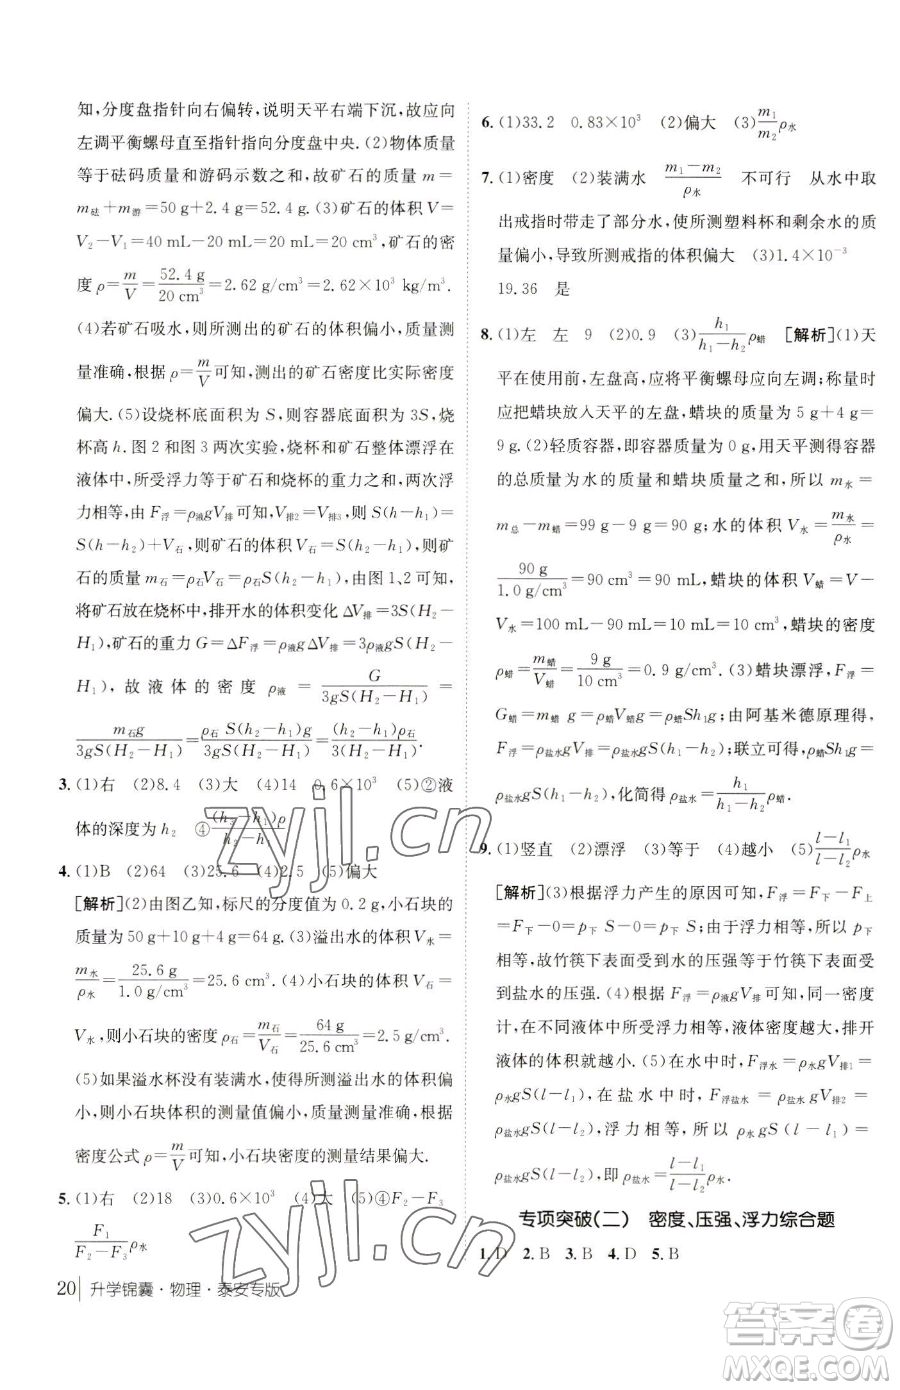 知,分度盘指针向右偏转,说明天平右端下沉,故应向
左调平衡螺母直至指针指向分度盘中央.(2)物体质量
等于砝码质量和游码示数之和,故矿石的质量 m=
m砝+m游=50 g+2.4 g=52.4 g.(3)矿石的体积 V=
V₂-V₁=40 mL-20 mL=20 mL=20 cm³,矿石的密
度 ρ=m/V=52.4 g/20 cm³=2.62 g/cm³=2.62×10³ kg/m³.
(4)若矿石吸水,则所测出的矿石的体积偏小,质量测
量准确,根据 ρ=m/V可知,测出的矿石密度比实际密度
偏大.(5)设烧杯底面积为 S,则容器底面积为 3S,烧
杯高 h.图 2 和图 3 两次实验,烧杯和矿石整体漂浮在
液体中,所受浮力等于矿石和烧杯的重力之和,两次浮
力相等,由 F浮=ρ液gV排可知,V排2=V排3,所以 S(h-h₁)=
S(h-h₂)+V石,则矿石的体积 V石=S(h₂-h₁),则矿
石的质量 m石=ρ石V石=ρ石S(h₂-h₁),由图 1、2 可知,
将矿石放在烧杯中,排开水的体积变化 ΔV排=3S(H₂-
H₁),矿石的重力 G=ΔF浮=ρ液gΔV排=3ρ液gS(H₂-
H₁),故液体的密度 ρ液=G/3gS(H₂-H₁)=
m石g/3gS(H₂-H₁)=ρ石S(h₂-h₁)g/3gS(H₂-H₁)=(h₂-h₁)ρ石/3(H₂-H₁).
3. (1)右 (2)8.4 (3)大 (4)14 0.6×10³ (5)②液
体的深度为 h₂ ④(h₃-h₁)ρ/h₂-h₁
4. (1)B (2)64 (3)25.6 (4)2.5 (5)偏大
[解析](2)由图乙知,标尺的分度值为 0.2 g,小石块的
质量为 50 g+10 g+4 g=64 g.(3)溢出水的体积 V水=
m水/ρ水=25.6 g/1.0 g/cm³=25.6 cm³.(4)小石块的体积 V石=
V水,则小石块的密度 ρ石=m石/V石=64 g/25.6 cm³=2.5 g/cm³.
(5)如果溢水杯没有装满水,则所测溢出水的体积偏
小,小石块体积的测量值偏小,小石块质量准确,根据
密度公式 ρ=m/V可知,小石块密度的测量结果偏大.
5. (1)右 (2)18 (3)0.6×10³ (5)④F₂-F₃
F₁/F₂-F₃ρ水
20 升学锦囊·物理·泰安专版
6. (1)33.2 0.83×10³ (2)偏大 (3)m₁/m₂ρ水
7. (1)密度 (2)装满水 m₁-m₂/ρ水 不可行 从水中取
出戒指时带走了部分水,使所测塑料杯和剩余水的质
量偏小,导致所测戒指的体积偏大 (3)1.4×10⁻³
19.36 是
8. (1)左 左 9 (2)0.9 (3)h₁/h₁-h₂ρ蜡 [解析](1)天
平在使用前,左盘高,应将平衡螺母应向左调;称量时
应把蜡块放入天平的左盘,蜡块的质量为 5 g+4 g=
9 g.(2)轻质容器,即容器的质量为 0 g,用天平测得容器
的总质量为水的质量和蜡块的质量之和,所以 m水=
m总-m蜡=99 g-9 g=90 g;水的体积 V水=m水/ρ水=
90 g/1.0 g/cm³=90 cm³=90 mL,蜡块的体积 V蜡=V-
V水=100 mL-90 mL=10 mL=10 cm³,蜡块的密度
ρ蜡=m蜡/V蜡=9 g/10 cm³=0.9 g/cm³.(3)蜡块漂浮,F浮=
G蜡=m蜡 g=ρ蜡V蜡g=ρ蜡Sh₁g;由阿基米德原理得,
F浮=ρ盐水gV排=ρ盐水gS(h₁-h₂);联立可得,ρ蜡Sh₁g=
ρ盐水gS(h₁-h₂),化简得 ρ盐水=h₁/h₁-h₂ρ蜡.
9. (1)竖直 (2)漂浮 (3)等于 (4)越小 (5)l-l₁/l-l₂ρ水
[解析](3)根据浮力产生的原因可知,F浮=F下-F上
=F下-0=p下 S-0=p下S;由于浮力等于重力,大小不
变,故竹筷下表面所受到水的压强等于竹筷下表面受
到盐水的压强.(4)根据 F浮=ρ液gV排可知,同一密度
计,在不同液体中浮力相等,液体密度越大,排开
液体的体积就越小.(5)在水中时,F浮水=ρ水gV排1=
ρ水gS(l-l₁),在盐水中时,F浮盐水=ρ盐水gV排2=
ρ盐水gS(l-l₂),浮力相等,所以 ρ水gS(l-l₁)=
ρ盐水gS(l-l₂),即 ρ盐水=l-l₁/l-l₂ρ水.
专项突破(二) 密度、压强、浮力综合题
1. D 2. B 3. B 4. D 5. B
zyjl.cn
zyjl.cn
答案圈
MXQE.COM